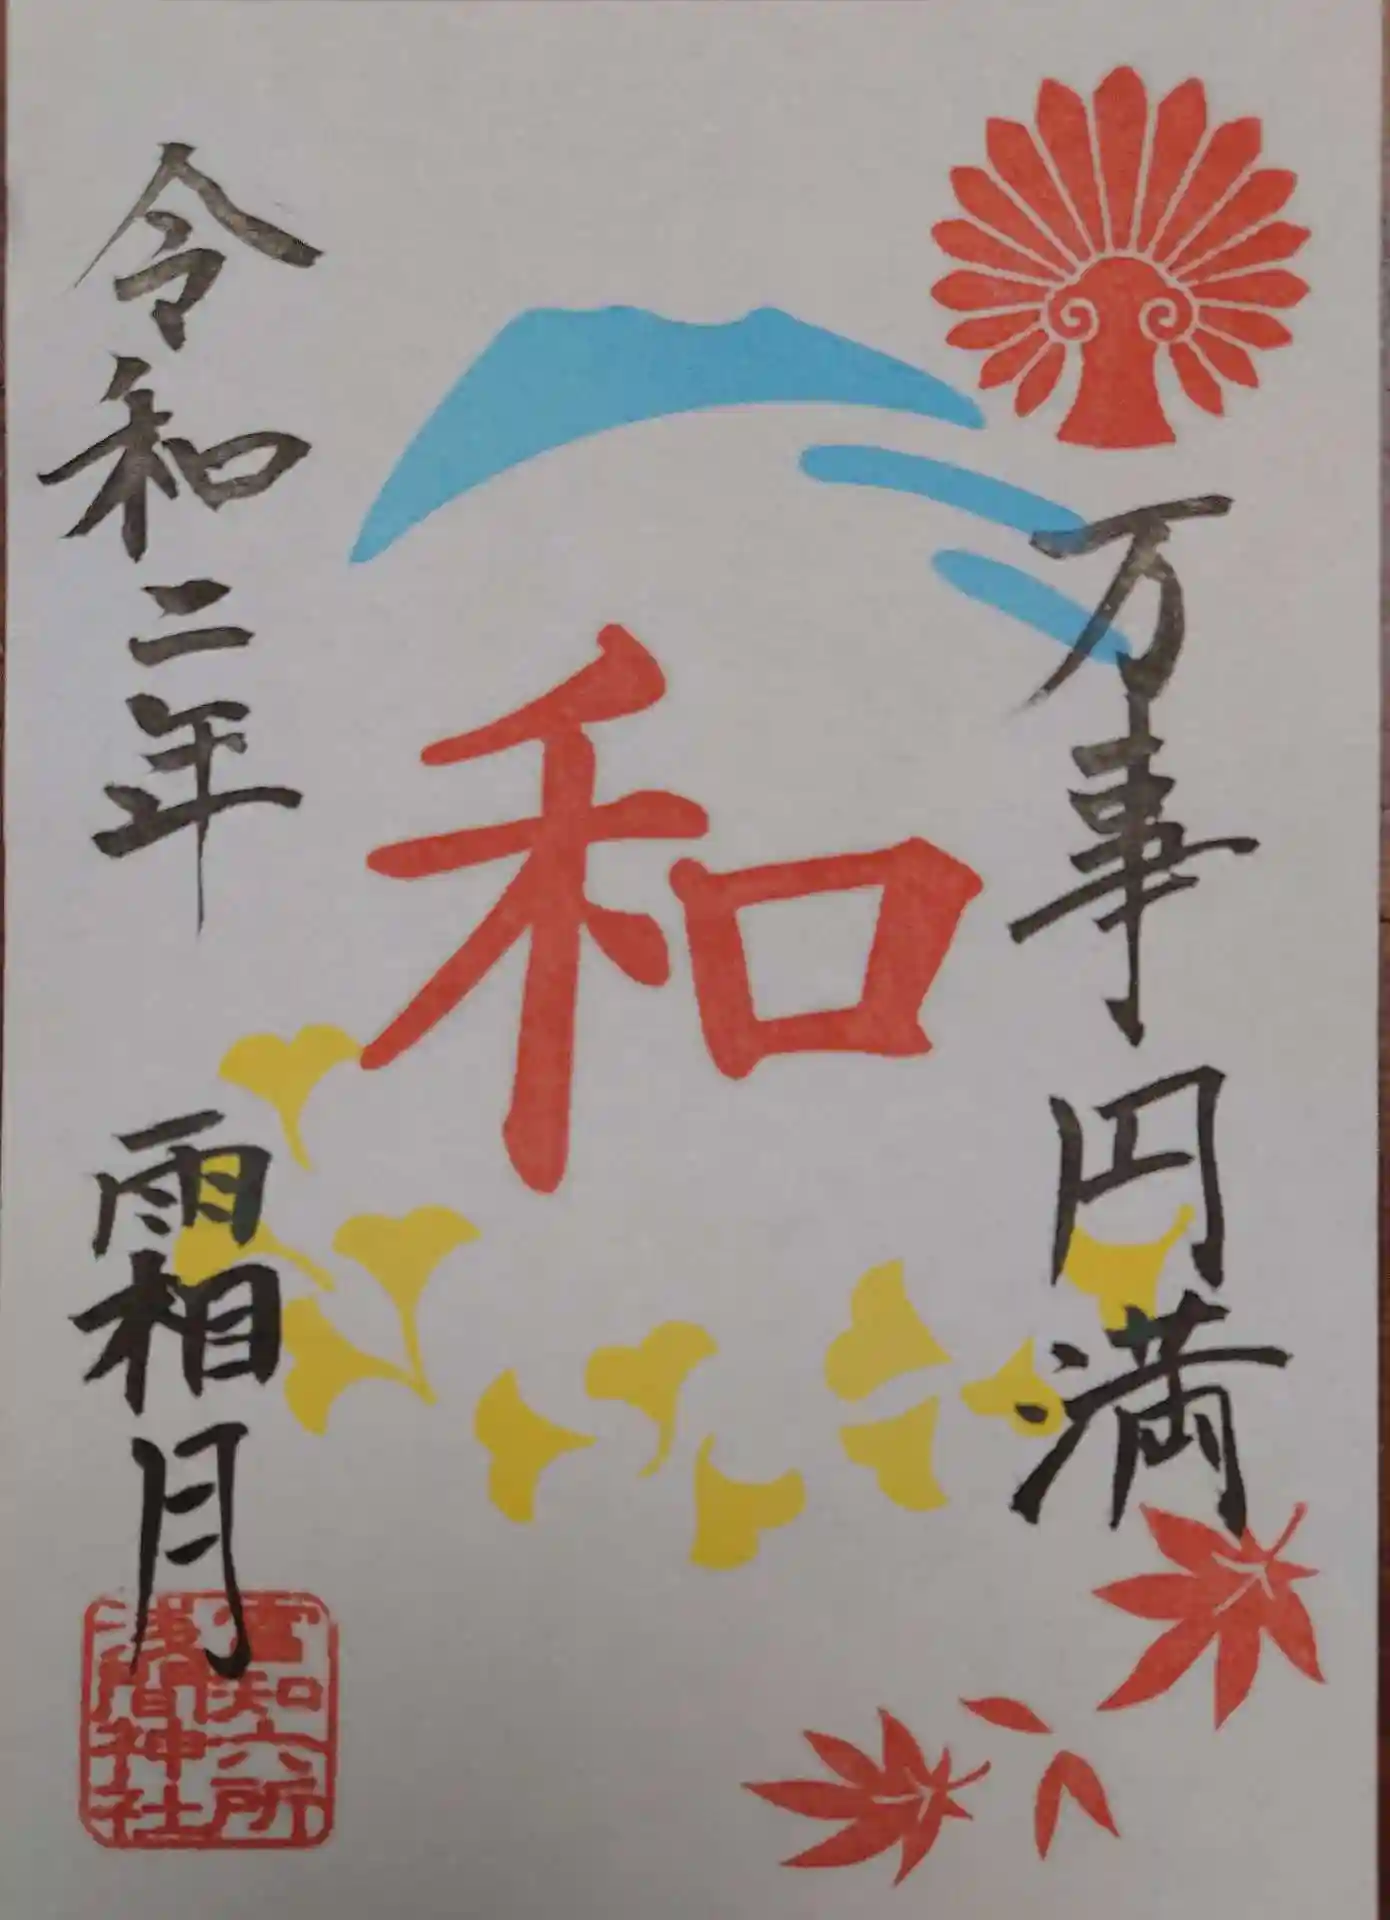 万事円満
和
令和二年 霜月
富知六所
浅間神社